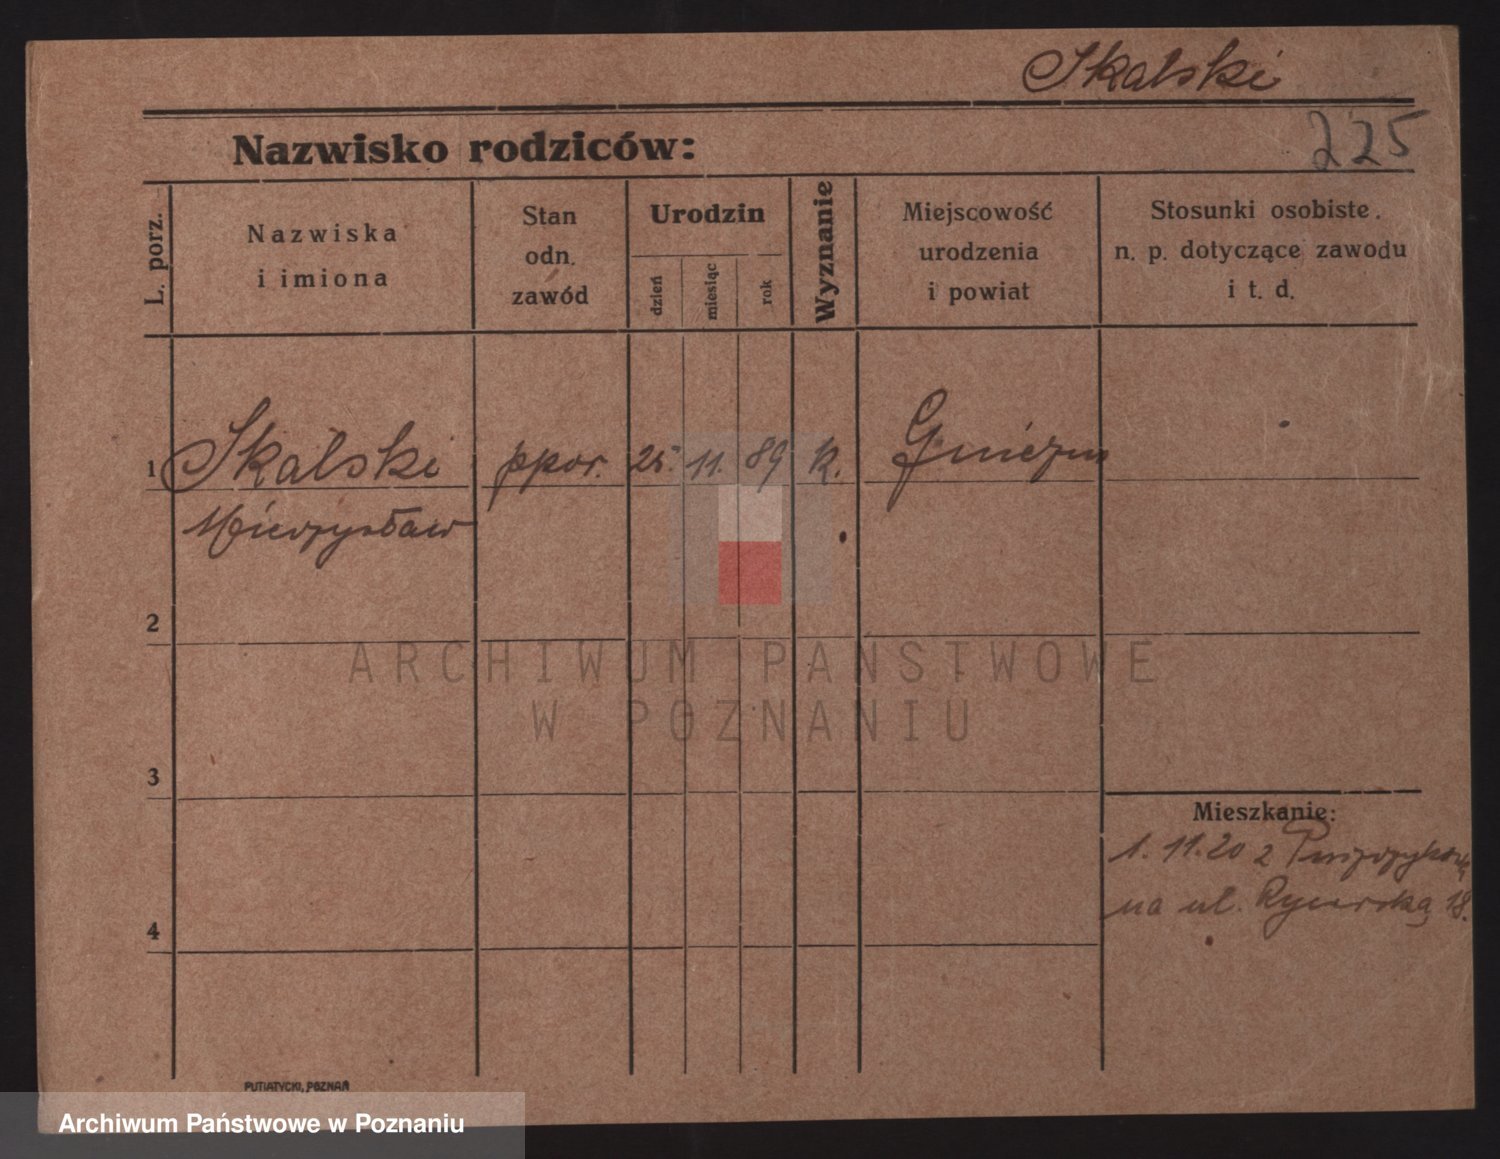 Skalski
225
Nazwisko rodziców:
L. porz.
Nazwiska
i imiona
Stan
odn.
zawód
Urodzin
dzień
miesiąc
rok
Wyznanie
Miejscowość
urodzenia
i powiat
Stosunki osobiste.
n. p. dotyczące zawodu
i t. d.
1 Skalski ppor. 25. 11. 89 k. Gniezno
Mieczysław
2
ARCHIWUM PAŃSTWOWE
W POZNANIU
3
Mieszkanie:
1. 11. 20 z
na ul. Rycerską 18.
4
PUTIATYCKI, POZNAŃ
Archiwum Państwowe w Poznaniu